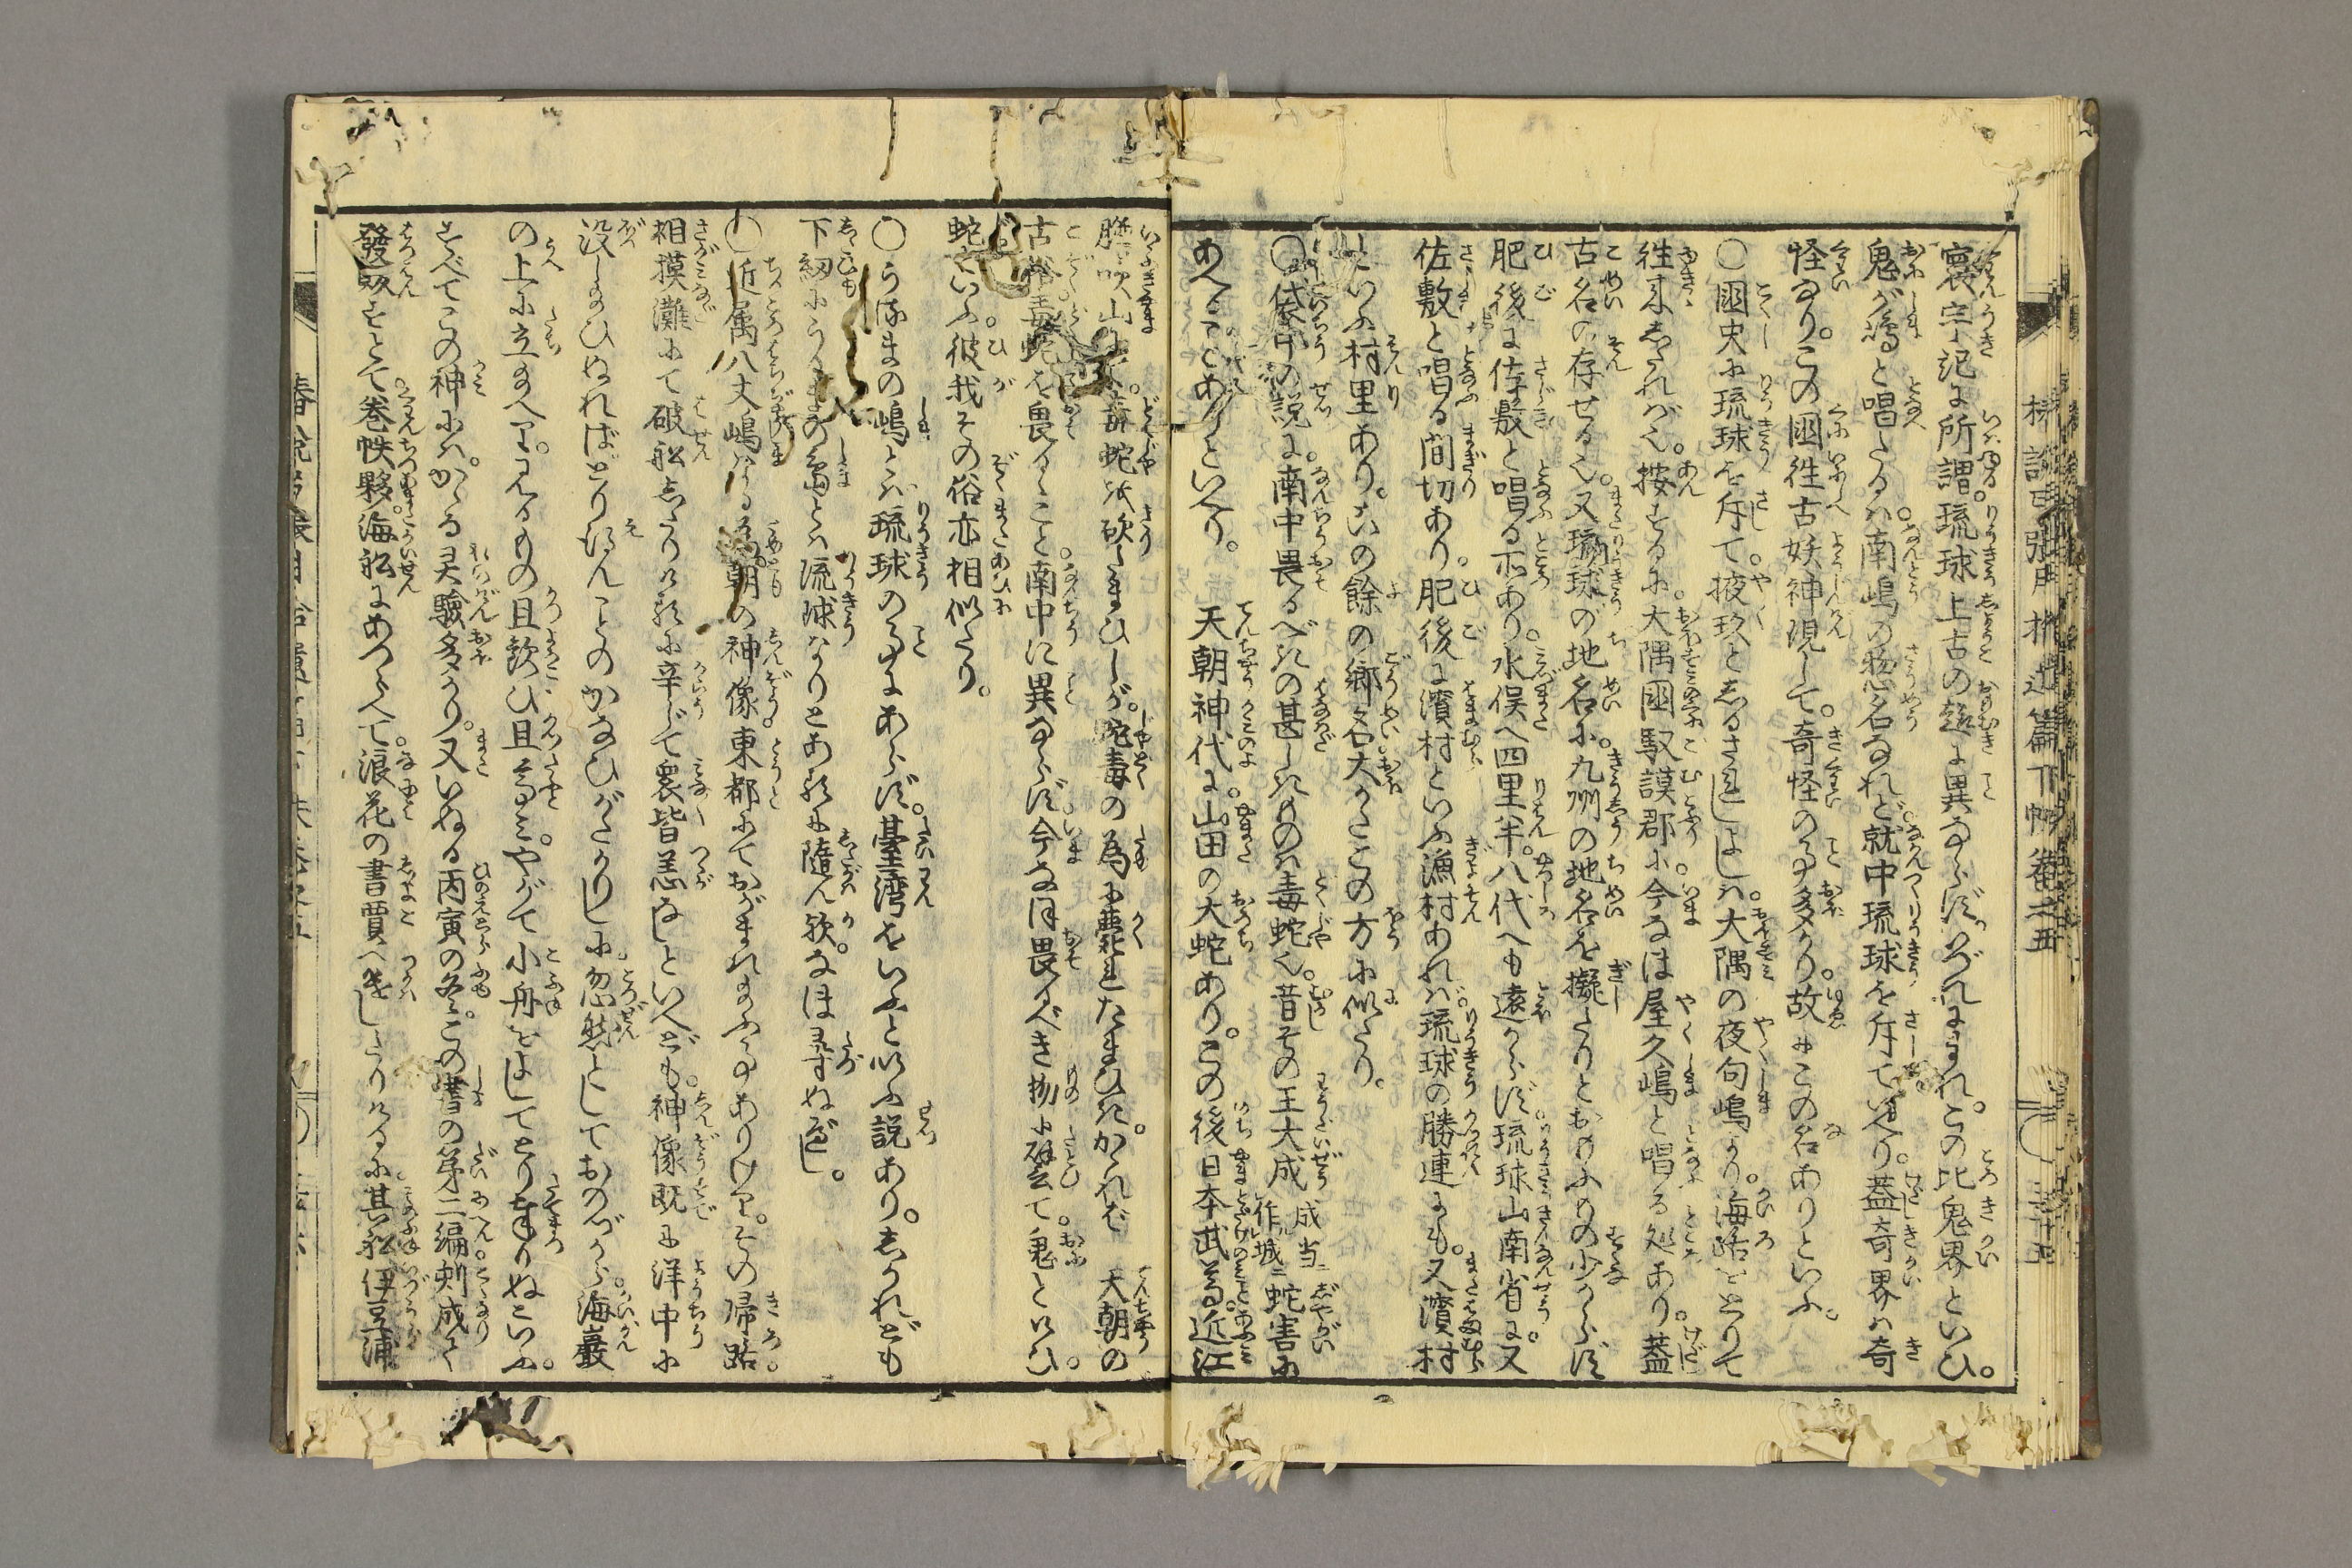 寰宇記に所謂。琉球上古の趣に異ならず。いづれにまれ。この比鬼界といひ。
鬼が嶋と唱たるは。南嶋の惣名なれど。就中琉球を斥ていへり。蓋奇界は奇
怪なり。この國往古妖神現して。奇怪の事多かり。故にこの名ありといふ。
○國史に琉球を斥て。掖玖としるされしよしは。大隅の夜句嶋より。海路をとりて
往来したればなり。按ずるに。大隅國馭謨郡に。今なほ屋久嶋と唱る処あり。蓋
古名の存せるなり。又琉球の地名に。九州の地名を擬したりとおもふもの少からず
肥後に佐敷と唱る所あり。水俣へ四里半。八代へも遠からず。琉球山南省に。又
佐敷と唱る間切あり。肥後に濱村といふ漁村あれば。琉球の勝連にも。又濱村
といふ村里あり。この餘の郷名大かたこの方に似たり。
○俗中の説に。南中畏るべきの甚しきものは毒蛇なり。昔その王大成 成当作城 蛇害に
あへることありといへり。 天朝神代に。山田の大蛇あり。この後日本武尊。近江
膽吹山に。毒蛇を砍たまひしが。蛇毒の為に薨れたまひき。かゝれば 天朝の
古俗毒蛇を畏るゝこと。南中に異ならず。今なほ畏るべき物に譬て。鬼といひ。
蛇といふ。彼我その俗亦相似たり。
○うるまの嶋とは琉球の事にあらず。臺湾をいふと以ふ説あり。しかれども
下紐にうるまの島とは琉球なりとあるに隨ん歟。なほ尋ぬべし。
○近属八丈嶋なる為朝の神像。東都にておがまれ給ふ事ありけり。その帰路。
相摸灘にて破舩したりけるに辛じて衆皆恙なしといへども。神像既に洋中に
没し給ひぬればとり得んことのかなひがたかりしに。忽然としておのづから。海巖
の上に立給へり。みるもの且歓び且尊み。やがて小舟をよしてとり奉りぬといふ。
すべてこの神には。かゝる灵驗多かり。又いぬる丙寅の冬。この書の第二編刻成て
發販すとて。巻帙夥。海舩にあつらへて。浪花の書賈へ遣したりけるに。其舩伊豆浦